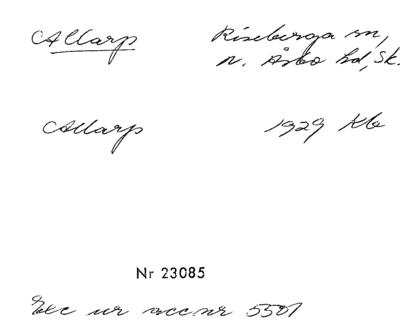 Allarp Riseberga sn,
N. Åsbo hd, Sk.
Allarp 1929 Kb
Nr 23085
Exc ur acc.nr 5501